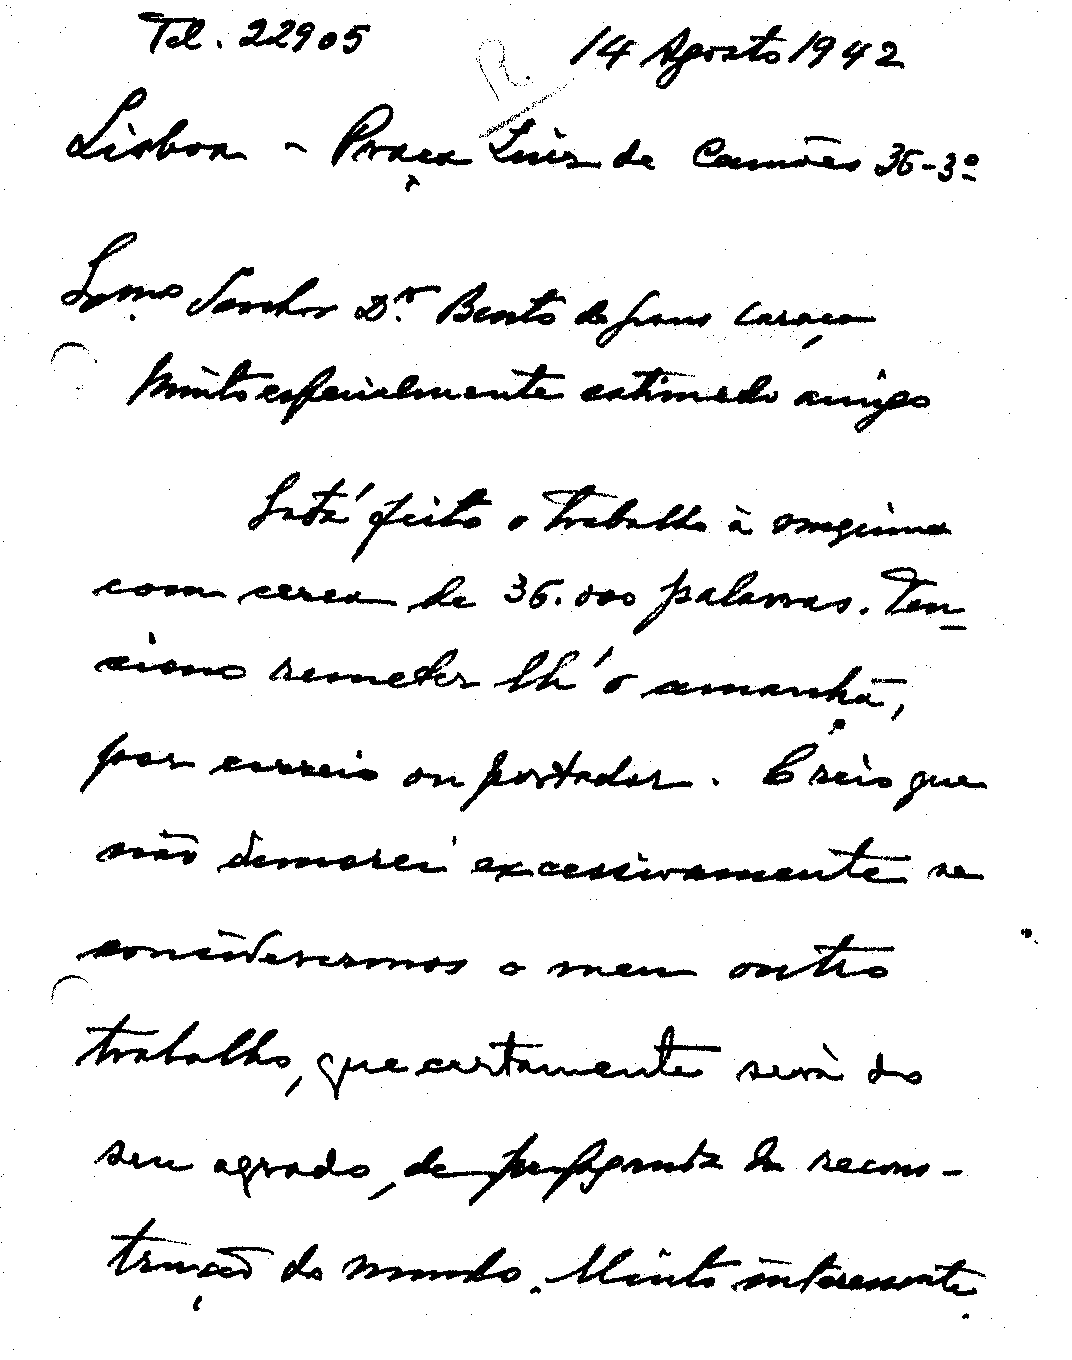 Tel. 22905 14 Agosto 1942
R.
Lisboa - Praça Luis de Camões 36-3º
Exmo Senhor Dr. Bento de Jesus Caraça
Muito especialmente estimado amigo
Está feito o trabalho à maquina
com cerca de 36.000 palavras. Ten-
ciono remeter lh'o amanhã,
por correio ou portador. Creio que
não demorei excessivamente se
considerarmos o meu outro
trabalho, que certamente será do
seu agrado, de propaganda da recons-
trução do mundo. Muito interessante.